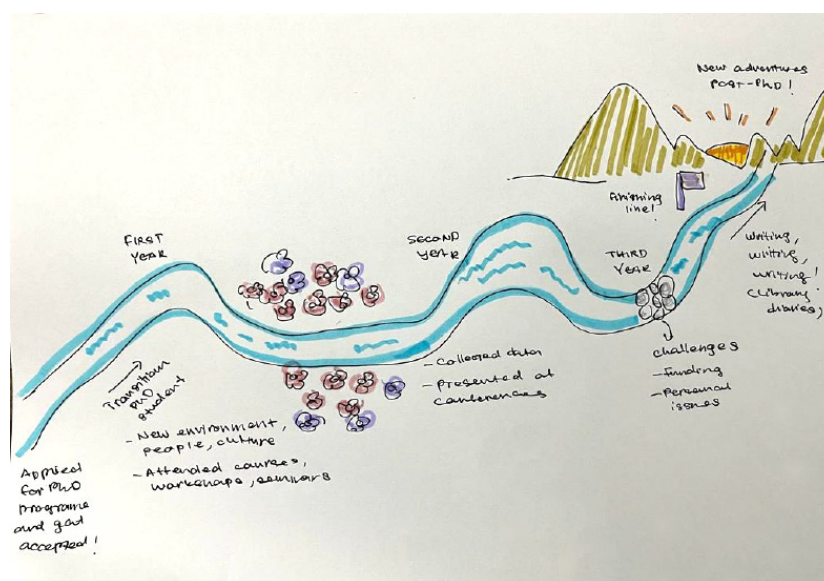 New adventures
Post-PhD!
Finishing
line!
FIRST
YEAR
SECOND
YEAR
THIRD
YEAR
writing,
writing,
writing!
(Library
diaries)
Transition
PhD
student
- New environment,
people, culture
- Attended courses,
workshops, seminars
- Collected data
- Presented at
conferences
challenges
- Funding
- Personal
issues
Applied
for PhD
programe
and got
accepted!